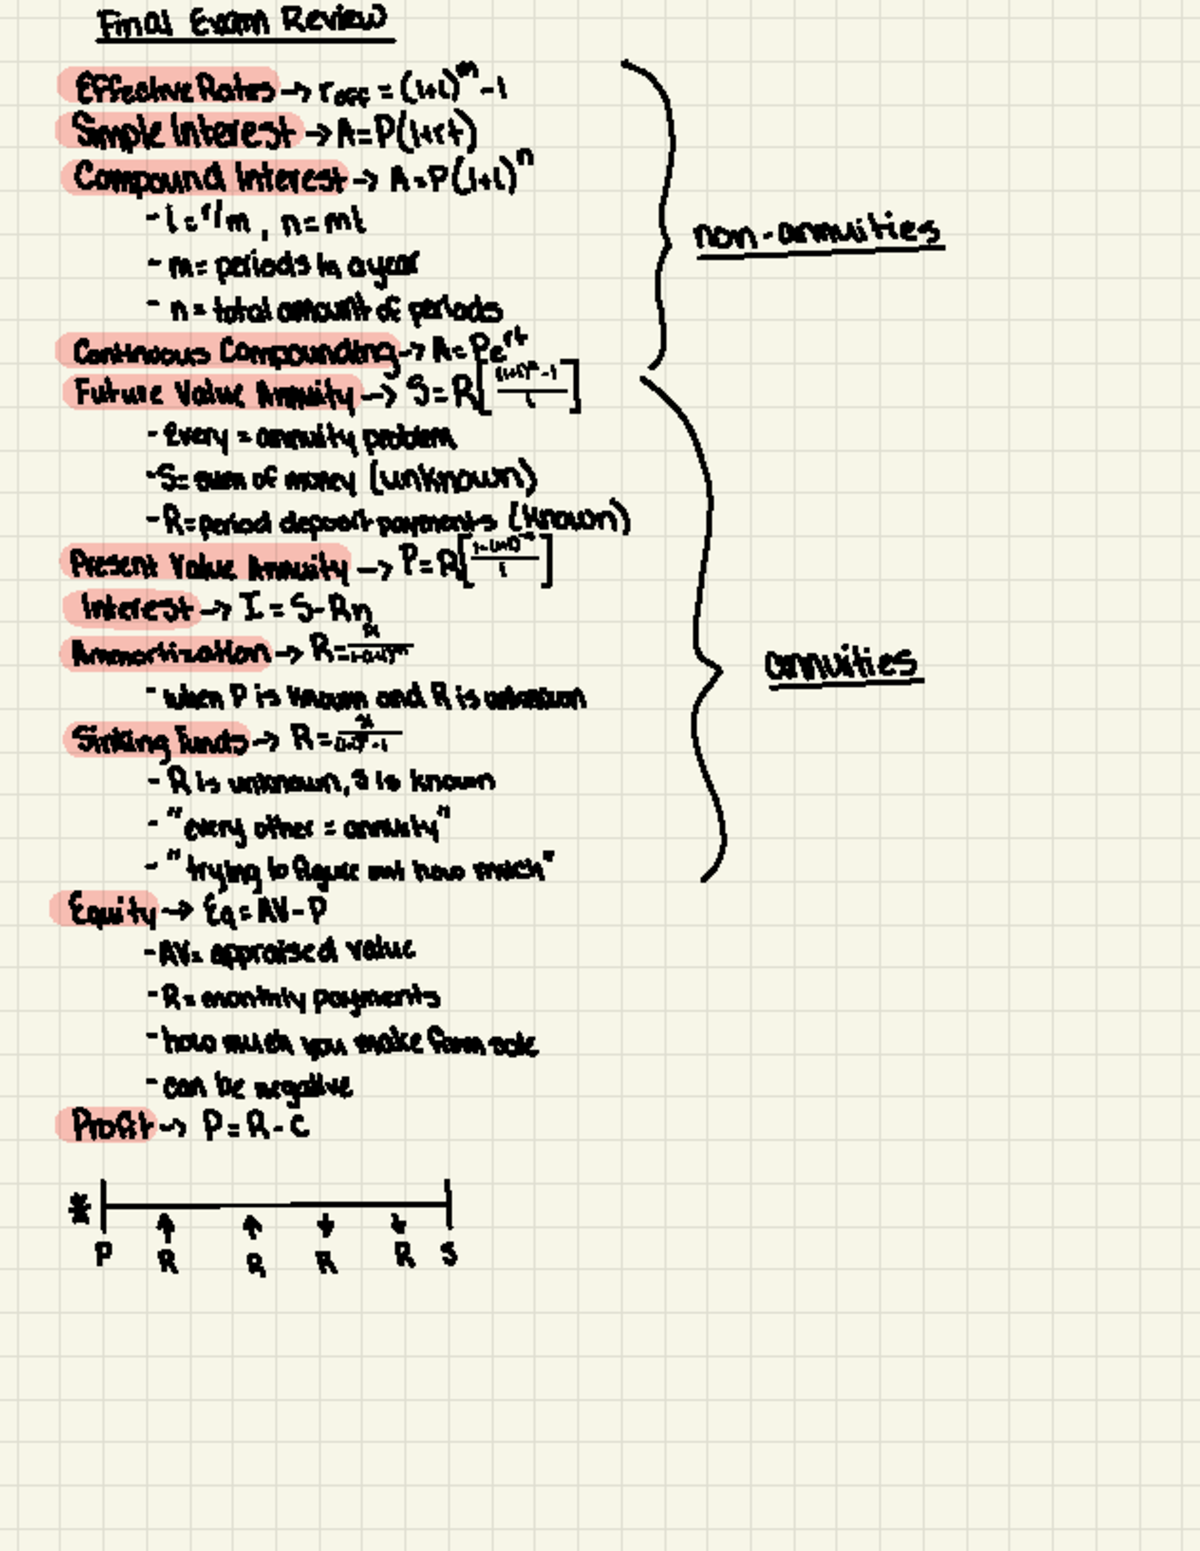 Final Exam Review
Effective Rates → r_eff = (1+i)^m - 1
Simple Interest → A=P(1+rt)
Compound Interest → A=P(1+i)^n
- i = r/m , n=mt
- m= periods in a year
- n = total amount of periods
non-annuities
Continuous Compounding → A=Pe^rt
Future Value Annuity → S=R[((1+i)^n - 1)/i]
- Every = annuity problem
- S= sum of money (unknown)
- R=period deposit payments (known)
Present Value Annuity → P=R[(1-(1+i)^-n)/i]
Interest → I = S-Rn
Ammortization → R=
annuities
- when P is known and R is unknown
Sinking Funds → R=
- R is unknown, S is known
- "every other = annuity"
- "trying to figure out how much"
Equity → Eq = AV - P
- AV= appraised value
- R= monthly payments
- how much you make form sale
- can be negative
Profit → P = R - C
*
P R R R R S